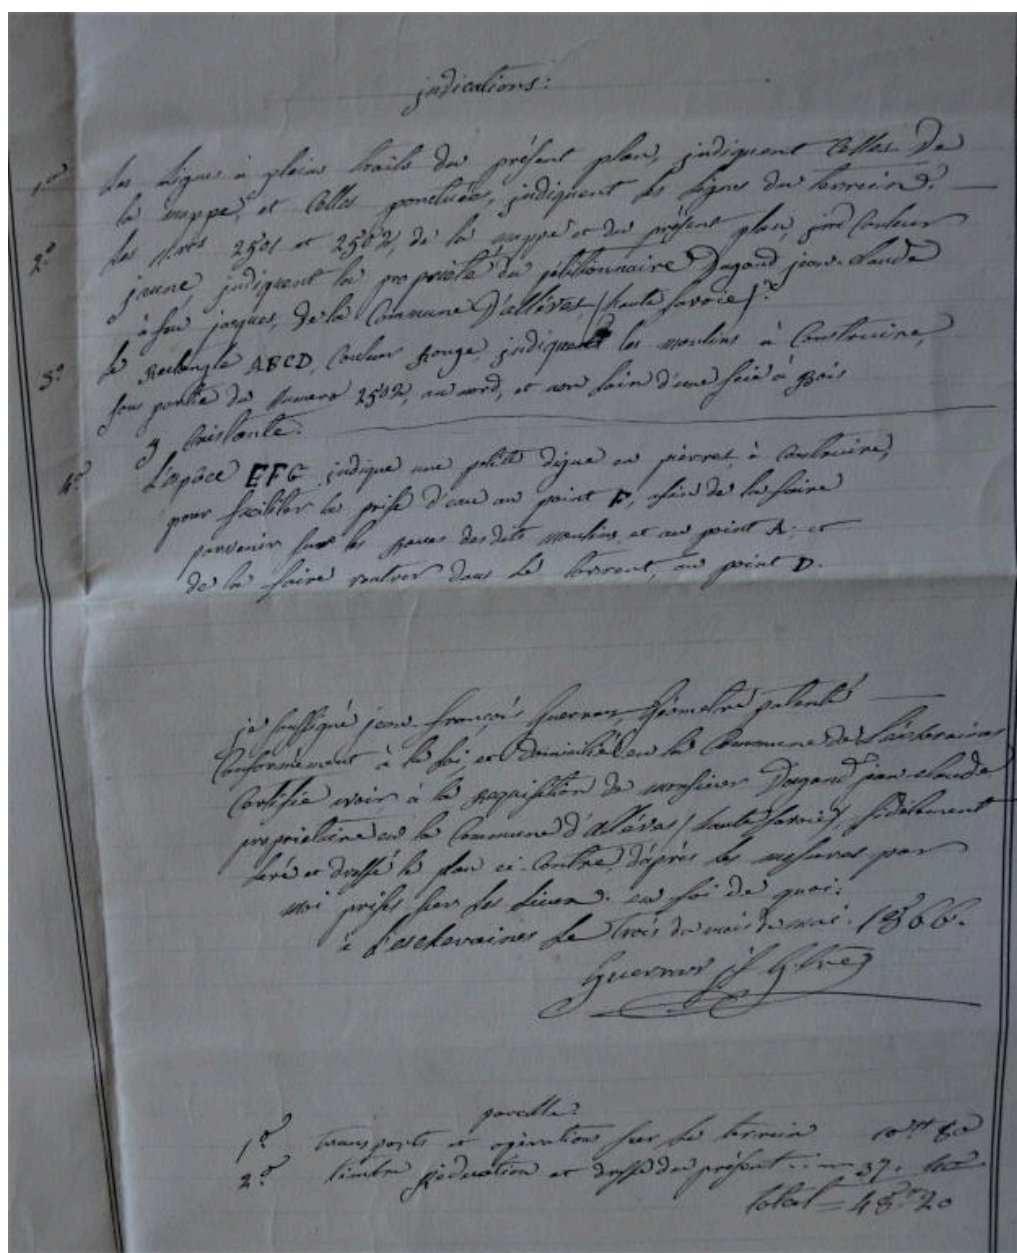 indications:
1.º Les lignes à pleins traits du présent plan, indiquent Celles De
la mappe, et Celles ponctuées, indiquent les lignes du terrein.
2.º Les N.ros 2501 et 2502, de la mappe et du présent plan, Couleur
jaune, indiquent la propriété du pétitionnaire Dagand jean-Claude
à feu jacques, de la Commune D'allèves, (haute Savoie).
3.º Le Rectangle ABCD, Couleur Rouge, indiquent les moulins à Construire,
sous partie du Numero 2502, au nord, et non loin d'une scie à Bois
y Existante.
4.º L'espace EFG, indique une petite digue en pierres, à Construire,
pour faciliter la prise d'eau au point F, afin de la faire
parvenir sur les Roues des dits moulins, et au point A. et
de la faire rentrer dans Le torrent, au point D.
je soussigné jean françois Guerraz, Géometre patenté
Conformément à la loi, et Domicilié en la Commune de
Certifie avoir à la Requisition de monsieur Dagand jean-Claude
propriétaire en la Commune d'allèves (haute Savoie), fidèlement
levé et dressé le plan ci-Contre, d'après les mesures par
moi prises sur les Lieux. en foi de quoi;
à Leschevaines Le trois du mois de mai. 1866.
Guerraz jf
parcelle:
1.º transports et opération sur Le terrein 10 80
2.º timbre Rédaction et dressé du présent 37.
total = 48 20